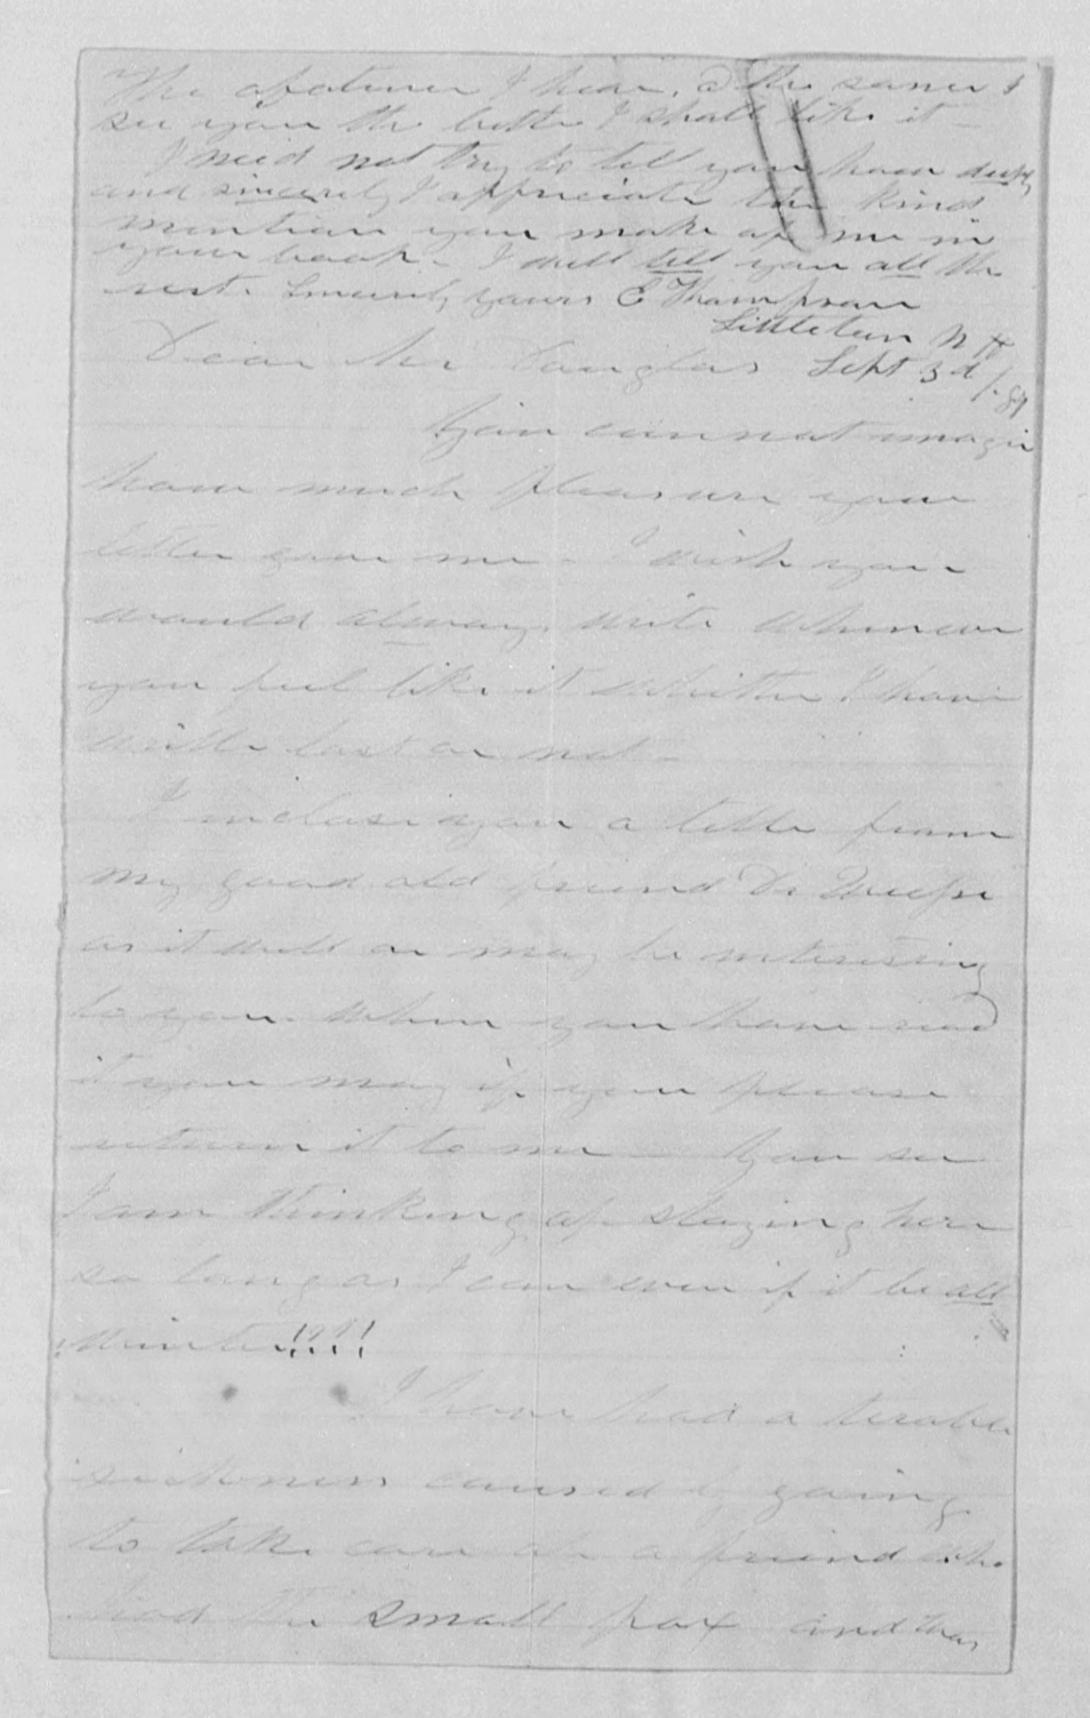 The oftener I hear, & the sooner I
see you the better I shall like it –
I need not try to tell you how deeply
and sincerely I appreciate the kind
mention you make of me in
your book – I will tell you all the
rest. Sincerely yours E Thompson
Littleton N H
Dear Mr Douglas Sept 3d
You cannot imagin
how much pleasure your
letter gave me – I wish you
would always write whenever
you feel like it whether I have
written last or not –
I inclose you a letter from
my good old friend Dr
as it will or may be interesting
to you. When you have read
it you may if you please
return it to me – You see
I am thinking of staying here
so long as I can even if it be all
Winter!!!!
I have had a terable
sickness caused by going
to take care of a friend who
had the small pox and